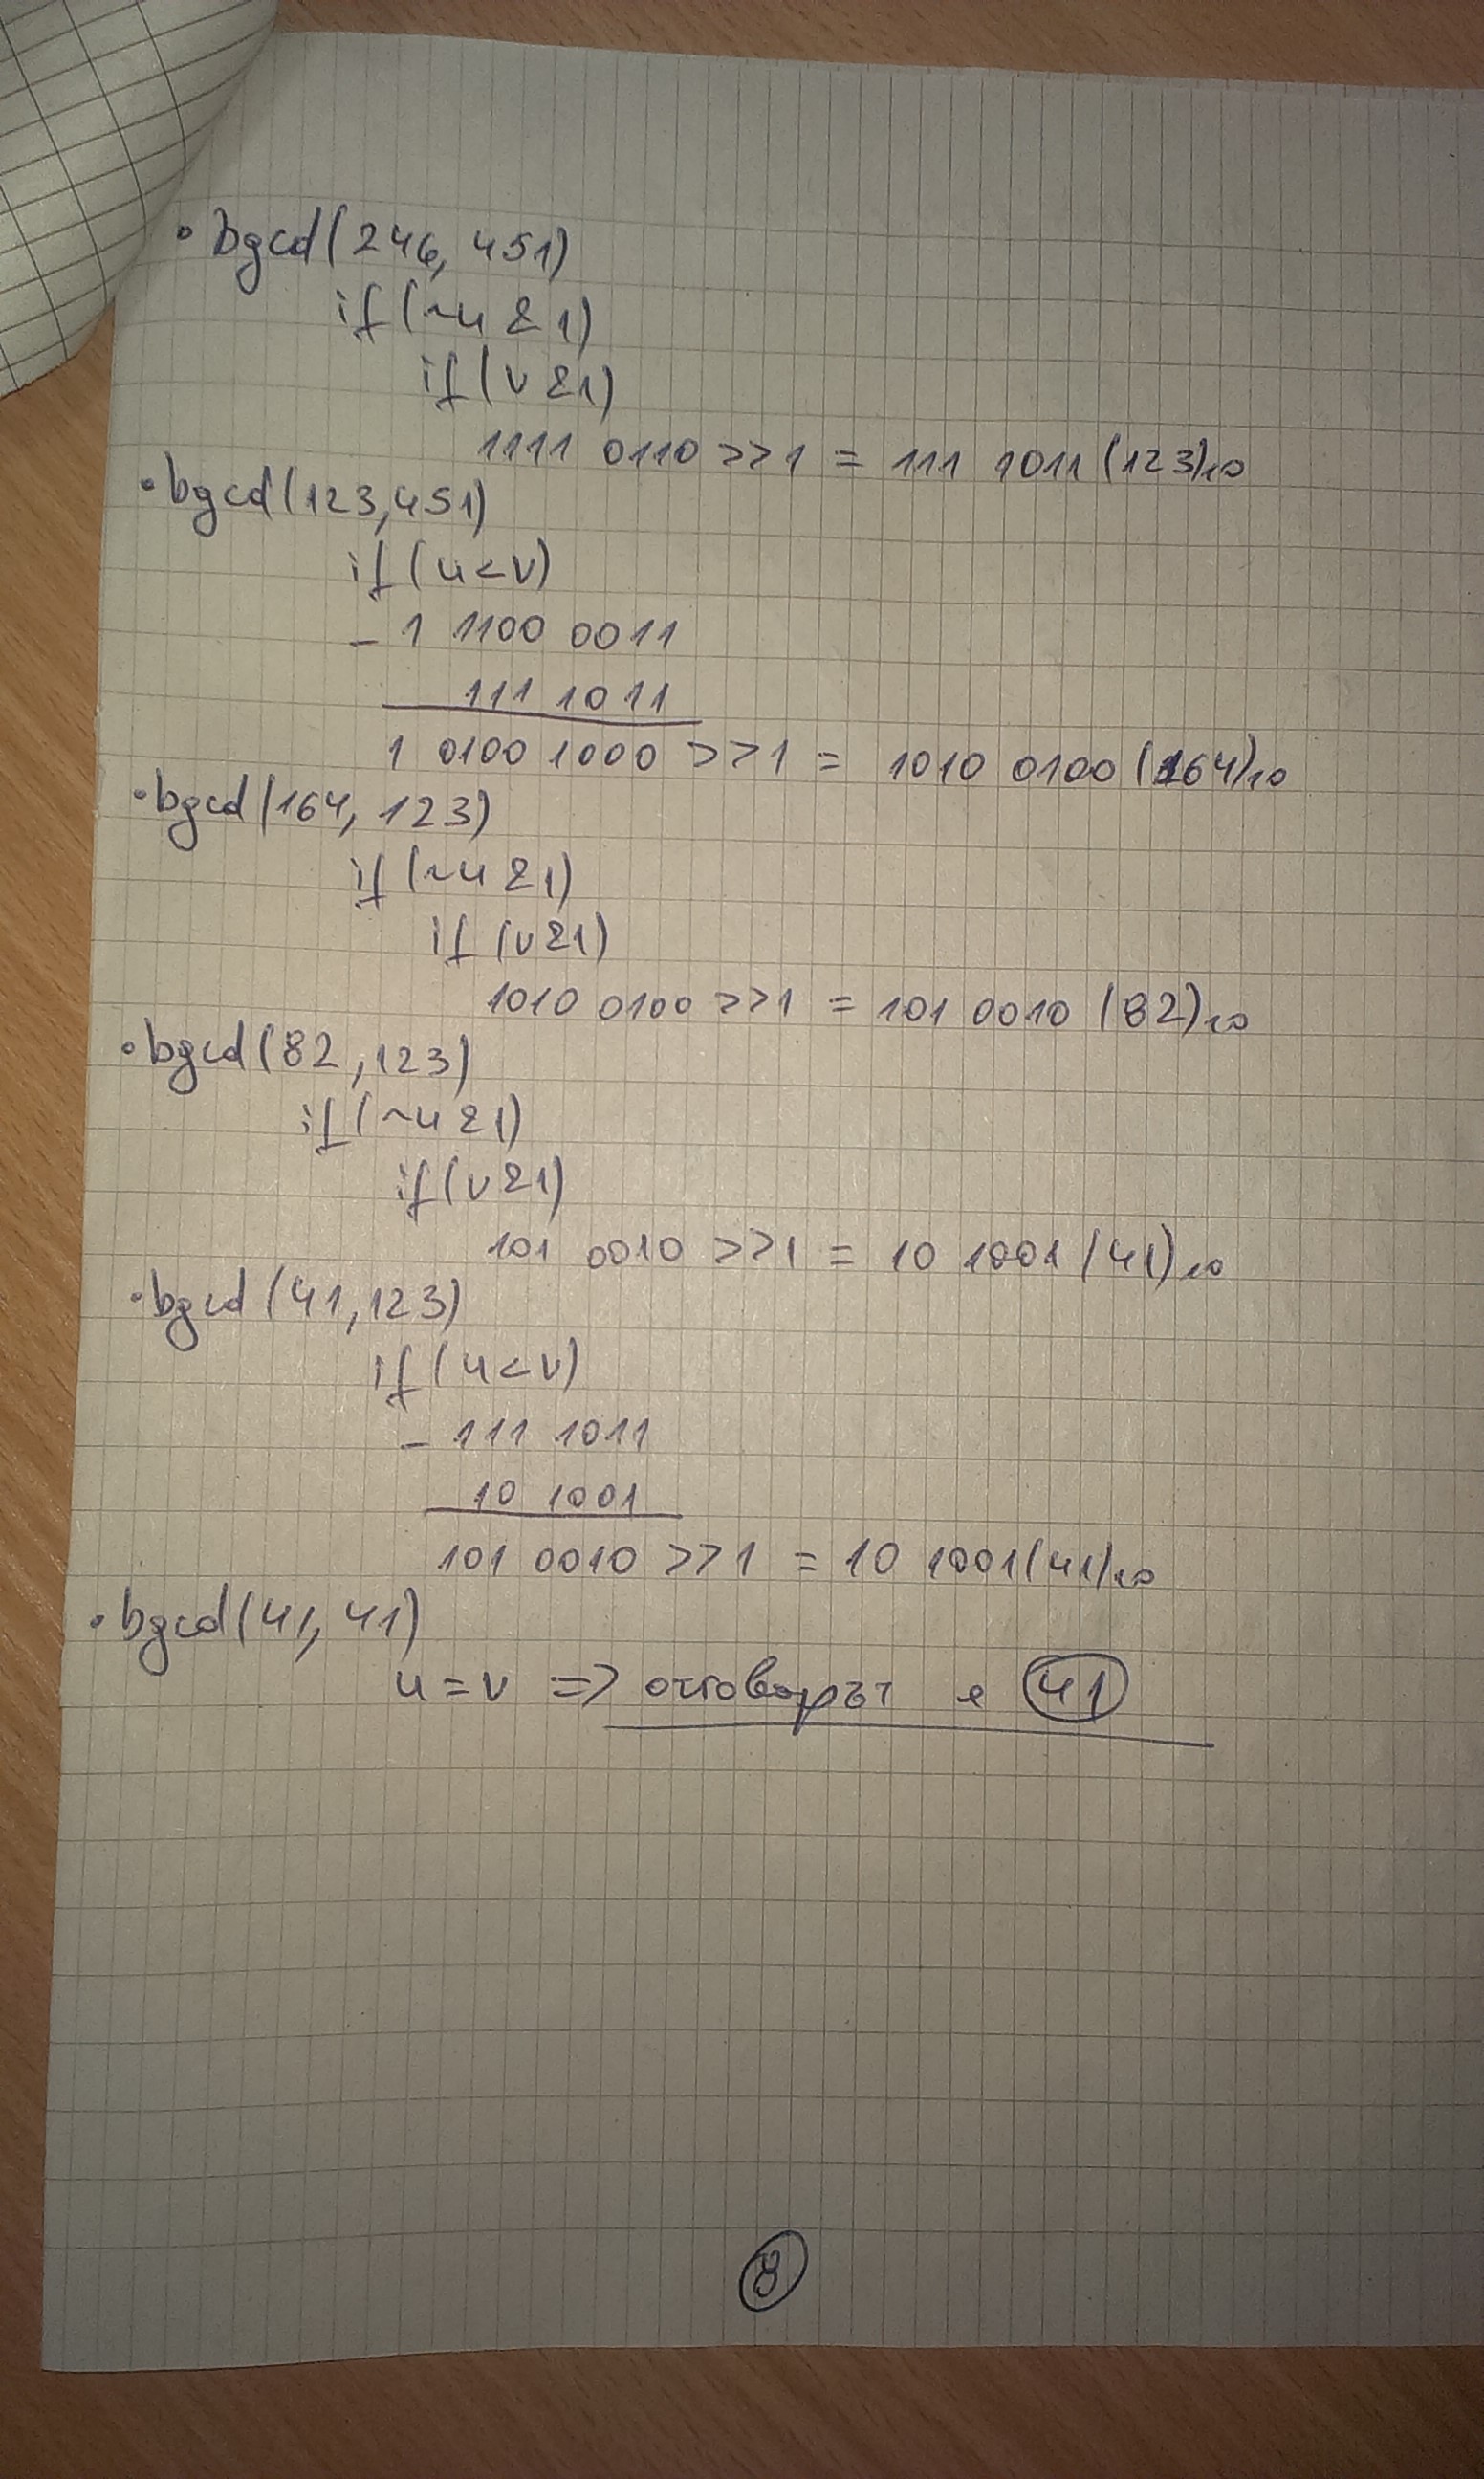 • bgcd(246, 451)
if(~u & 1)
if(v & 1)
1111 0110 >> 1 = 111 1011 (123)10
• bgcd(123, 451)
if(u < v)
- 1 1100 0011
111 1011
1 0100 1000 >> 1 = 1010 0100 (164)10
• bgcd(164, 123)
if(~u & 1)
if(v & 1)
1010 0100 >> 1 = 101 0010 (82)10
• bgcd(82, 123)
if(~u & 1)
if(v & 1)
101 0010 >> 1 = 10 1001 (41)10
• bgcd(41, 123)
if(u < v)
- 111 1011
10 1001
101 0010 >> 1 = 10 1001 (41)10
• bgcd(41, 41)
u = v => отговорът е 41
8